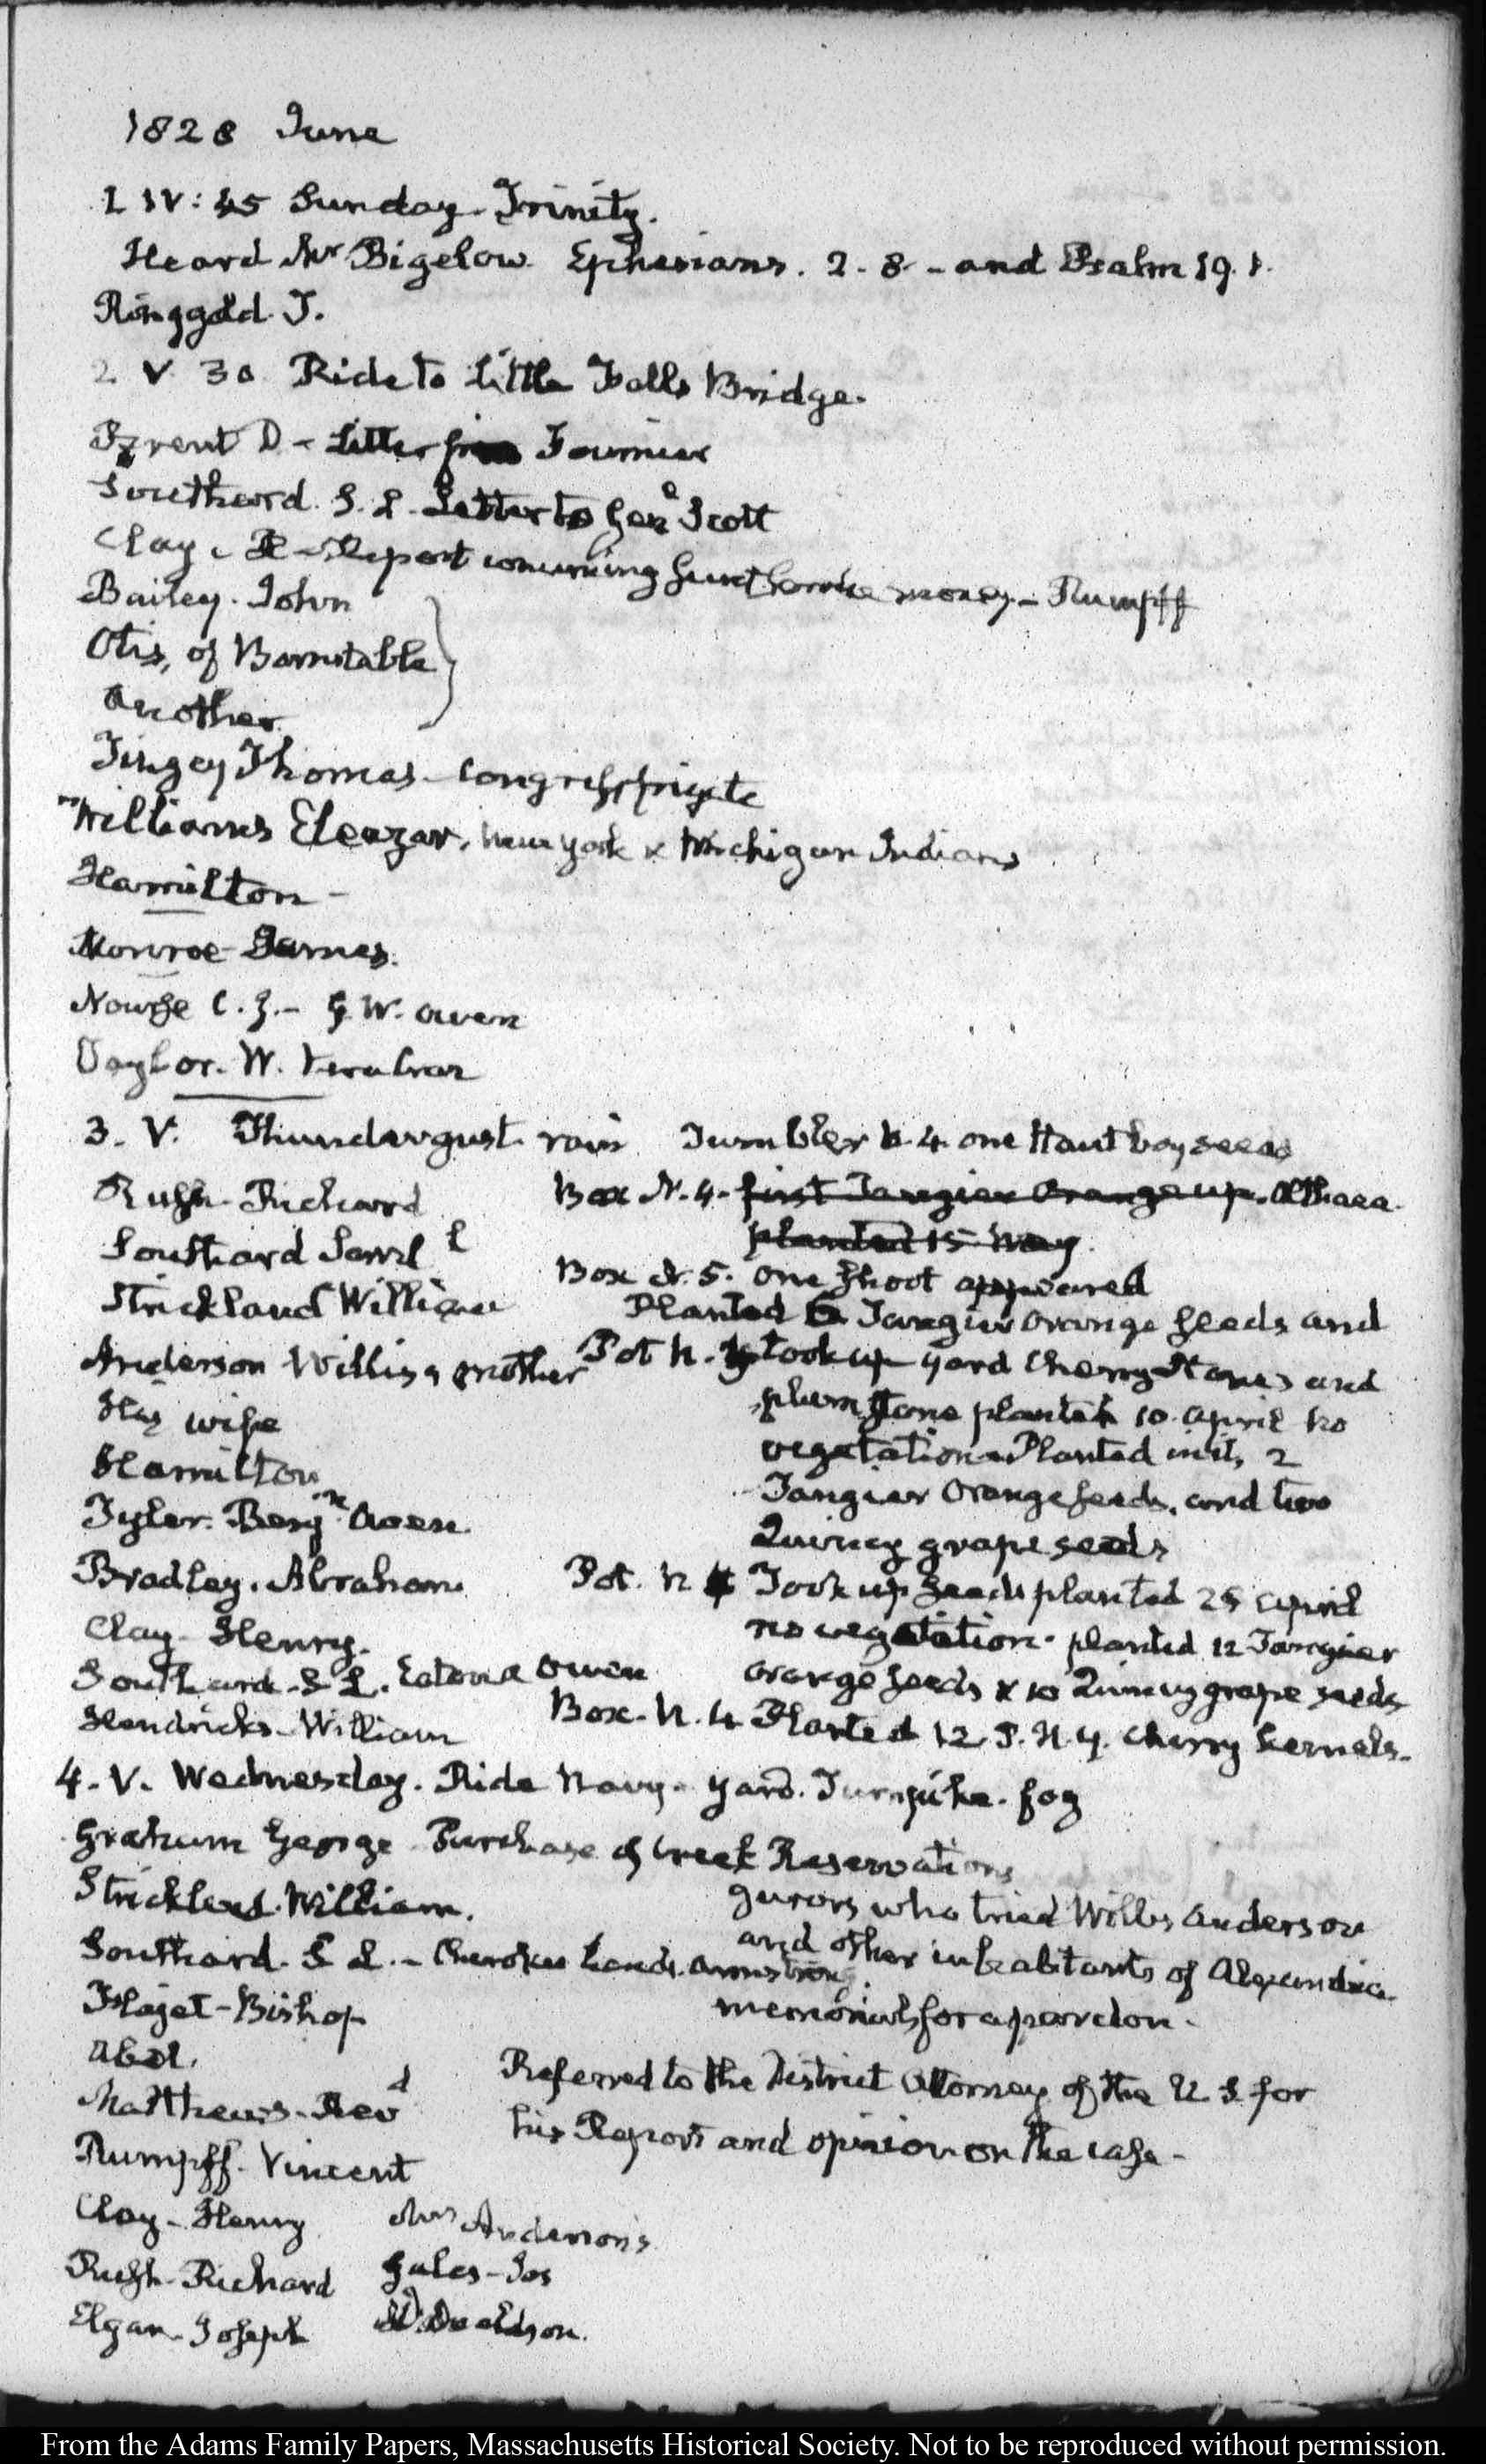 1828 June
1 IV: 45 Sunday. Trinity.
Heard Mr Bigelow. Ephesians. 2. 8. - and Psalm 19. 1.
Ringgold. T.
2 V 30 Ride to Little Falls Bridge.
Brent D - Letter from Fournier
Southard. S. L. Letter to Genl Scott
Clay. - Report concerning money - Rumpff
Bailey. John
Otis, of Barnstable
another.
Tingey Thomas - Congress frigate
Williams Eleazar, New York & Michigan Indians
Hamilton -
Monroe James.
Nourse C. J. - G. W. Owen
Taylor. W. Vera Cruz
3. V. Thundergust. rain Tumbler N. 4. one Hautboy seeds
Rush - Richard Box N. 4. first Tangier Orange up. Althaea.
planted 15 May.
Southard Saml L
Box N. 5. One shoot appeared
Strickland William
Planted 6 Tangier orange seeds and
Anderson Willis's mother
Pot N. took up yard Cherry Stones and
plum stone planted 10 April no
His wife
vegetation. Planted in it, 2
Hamilton
Tangier Orange seeds, and two
Tyler. Benjn Owen.
Quincy grape seeds
Bradley. Abraham.
Pot. N 4 Took up seeds planted 25 April
Clay - Henry.
no vegetation. planted 12 Tangier
Southard. S L. Eaton & Owen
orange seeds & 10 Quincy grape seeds
Hendricks - William
Box. N. 4 Planted 12 P. N. Y. Cherry kernels.
4. V. Wednesday. Ride Navy-yard. Turnpike. fog
Graham George Purchase of Creek Reservations
Strickland. William. Jurors who tried Willis Anderson
and other inhabitants of Alexandria
Southard. S L. - Cherokee Lands. Armstrong.
Flaget - Bishop memorials for a pardon.
Abel.
Referred to the District Attorney of the U. S for
Matthews - Revd
his Report and opinion on the case -
Rumpff. Vincent
Clay - Henry Mrs Anderson's
Rush - Richard Gales - Jos
Elgar. Joseph Donelson.
From the Adams Family Papers, Massachusetts Historical Society. Not to be reproduced without permission.